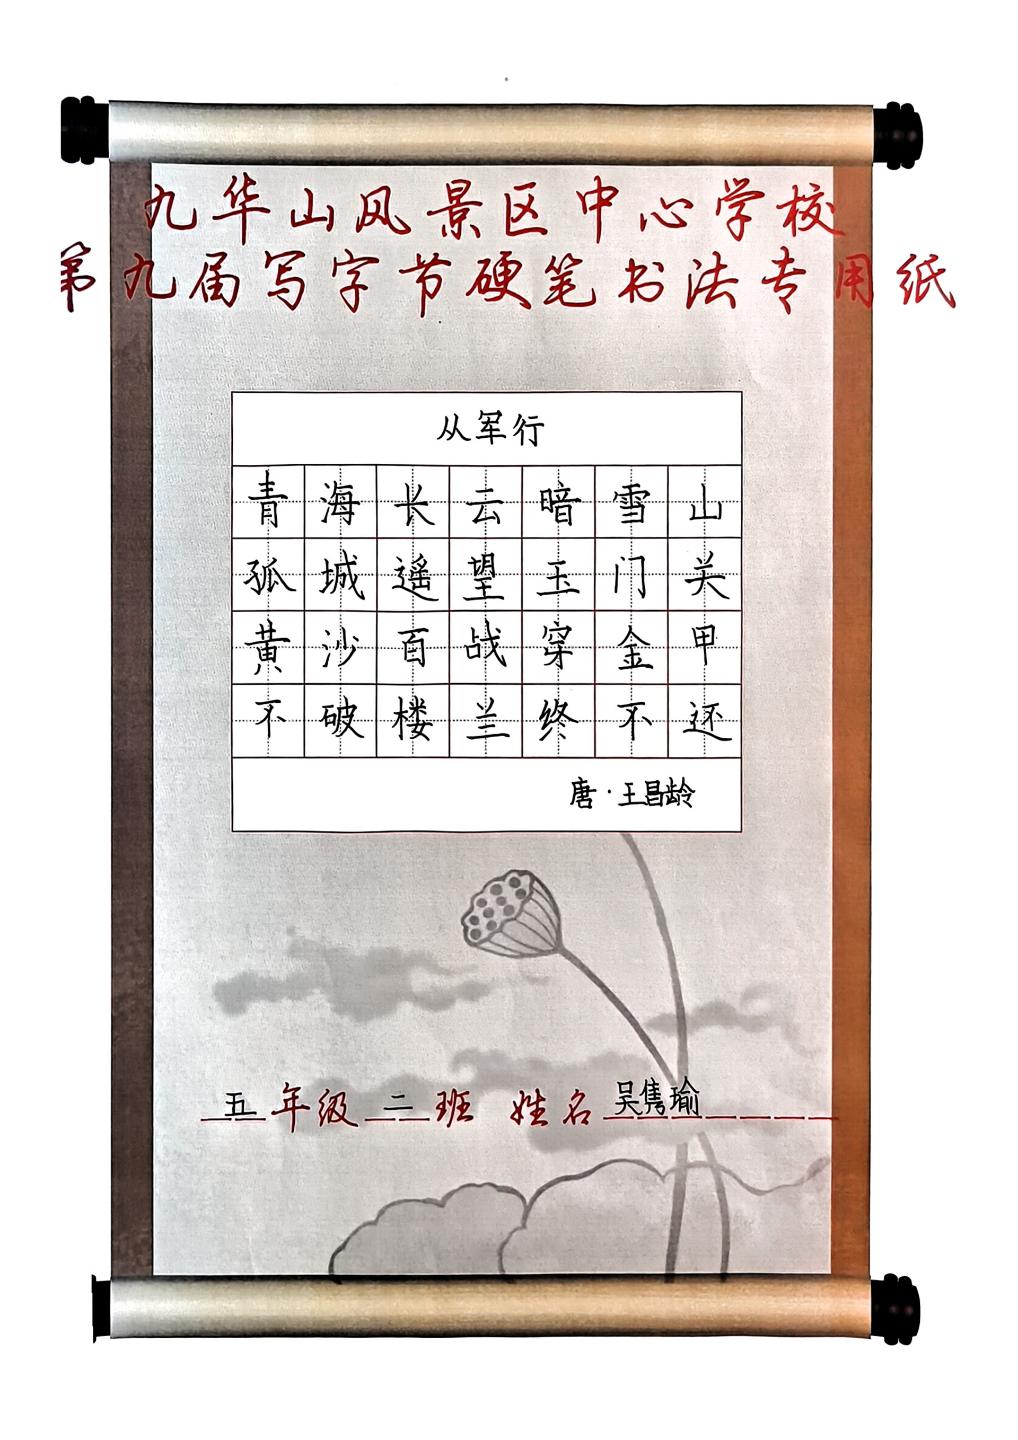 九华山风景区中心学校
第九届写字节硬笔书法专用纸
从军行
青海长云暗雪山
孤城遥望玉门关
黄沙百战穿金甲
不破楼兰终不还
唐·王昌龄
五年级二班 姓名吴隽瑜